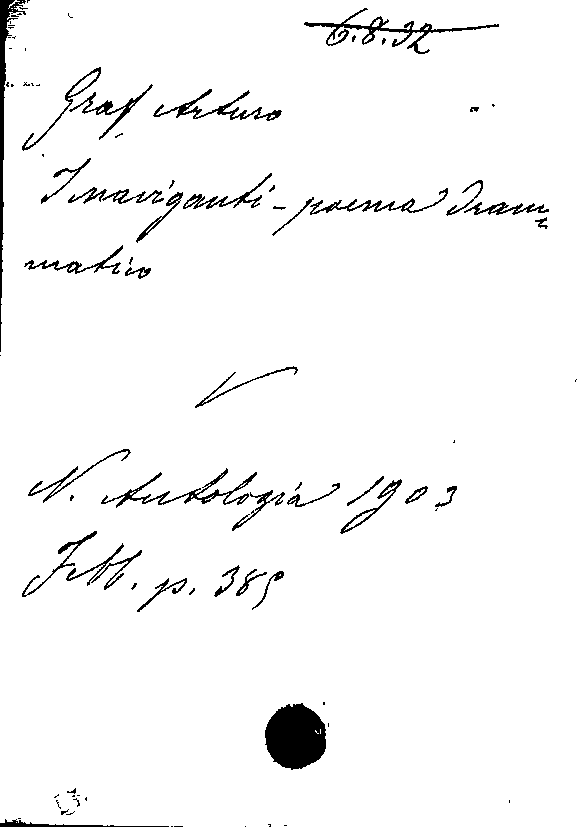 6.8.32
Graf Arturo
I naviganti - poema dram=
matico
N. Antologia 1903
Febb. p. 385